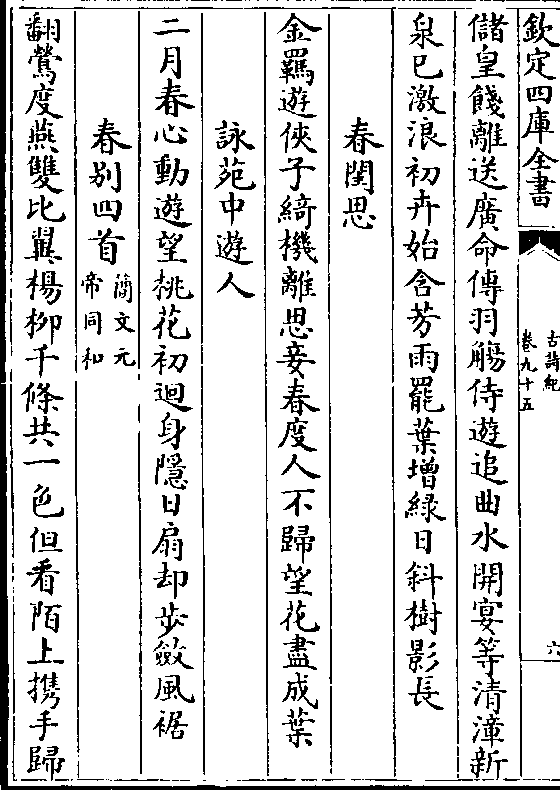 欽定四庫全書
古詩紀
卷九十五
六
儲皇餞離送廣命傳羽觴侍遊追曲水開宴等清漳新
泉已激浪初卉始含芳雨罷葉增緑日斜樹影長
春閨思
金羈遊俠子綺機離思妾春度人不歸望花盡成葉
詠苑中遊人
二月春心動遊望桃花初迴身隱日扇却步斂風裾
春别四首
簡文元
帝同和
翻鶯度燕雙比翼楊柳千條共一色但看陌上携手歸